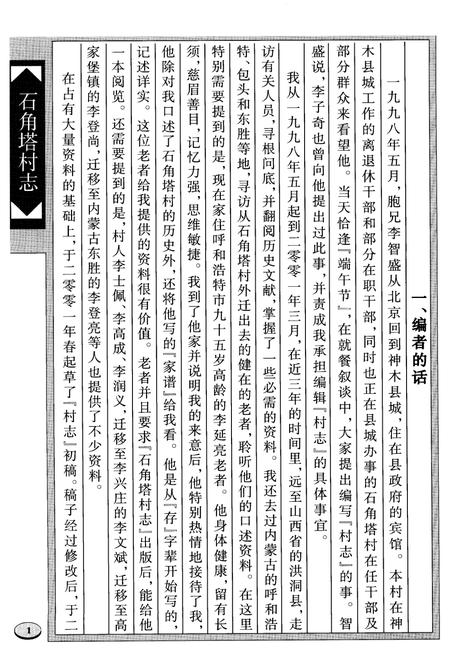 一、编者的话
一九九八年五月，胞兄李智盛从北京回到神木县城，住在县政府的宾馆。本村在神
木县城工作的离退休干部和部分在职干部，同时也正在县城办事的石角塔村在任干部及
部分群众来看望他。当天恰逢『端午节』，在就餐叙谈中，大家提出编写『村志』的事。智
盛说，李子奇也曾向他提出过此事，并责成我承担编辑『村志』的具体事宜。
我从一九九八年五月起到二零零一年三月，在近三年的时间里，远至山西省的洪洞县，走
访有关人员，寻根问底，并翻阅历史文献，掌握了一些必需的资料。我还去过内蒙古的呼和浩
特、包头和东胜等地，寻访从石角塔村外迁出去的健在的老者，聆听他们的口述资料。在这里
特别需要提到的是，现在家住呼和浩特市九十五岁高龄的李延亮老者。他身体健康，留有长
须，慈眉善目，记忆力强，思维敏捷。我到了他家并说明我的来意后，他特别热情地接待了我，
他除对我口述了石角塔村的历史外，还将他写的『家谱』给我看。他是从『存』字辈开始写的，
记述详实。这位老者给我提供的资料很有价值。老者并且要求『石角塔村志』出版后，能给他
一本阅览。还需要提到的是，村人李士佩、李高成、李润义，迁移至李兴庄的李文斌，迁移至高
家堡镇的李登尚，迁移至内蒙古东胜的李登亮等人也提供了不少资料。
在占有大量资料的基础上，于二零零一年春起草了『村志』初稿。稿子经过修改后，于二
石角塔村志
1